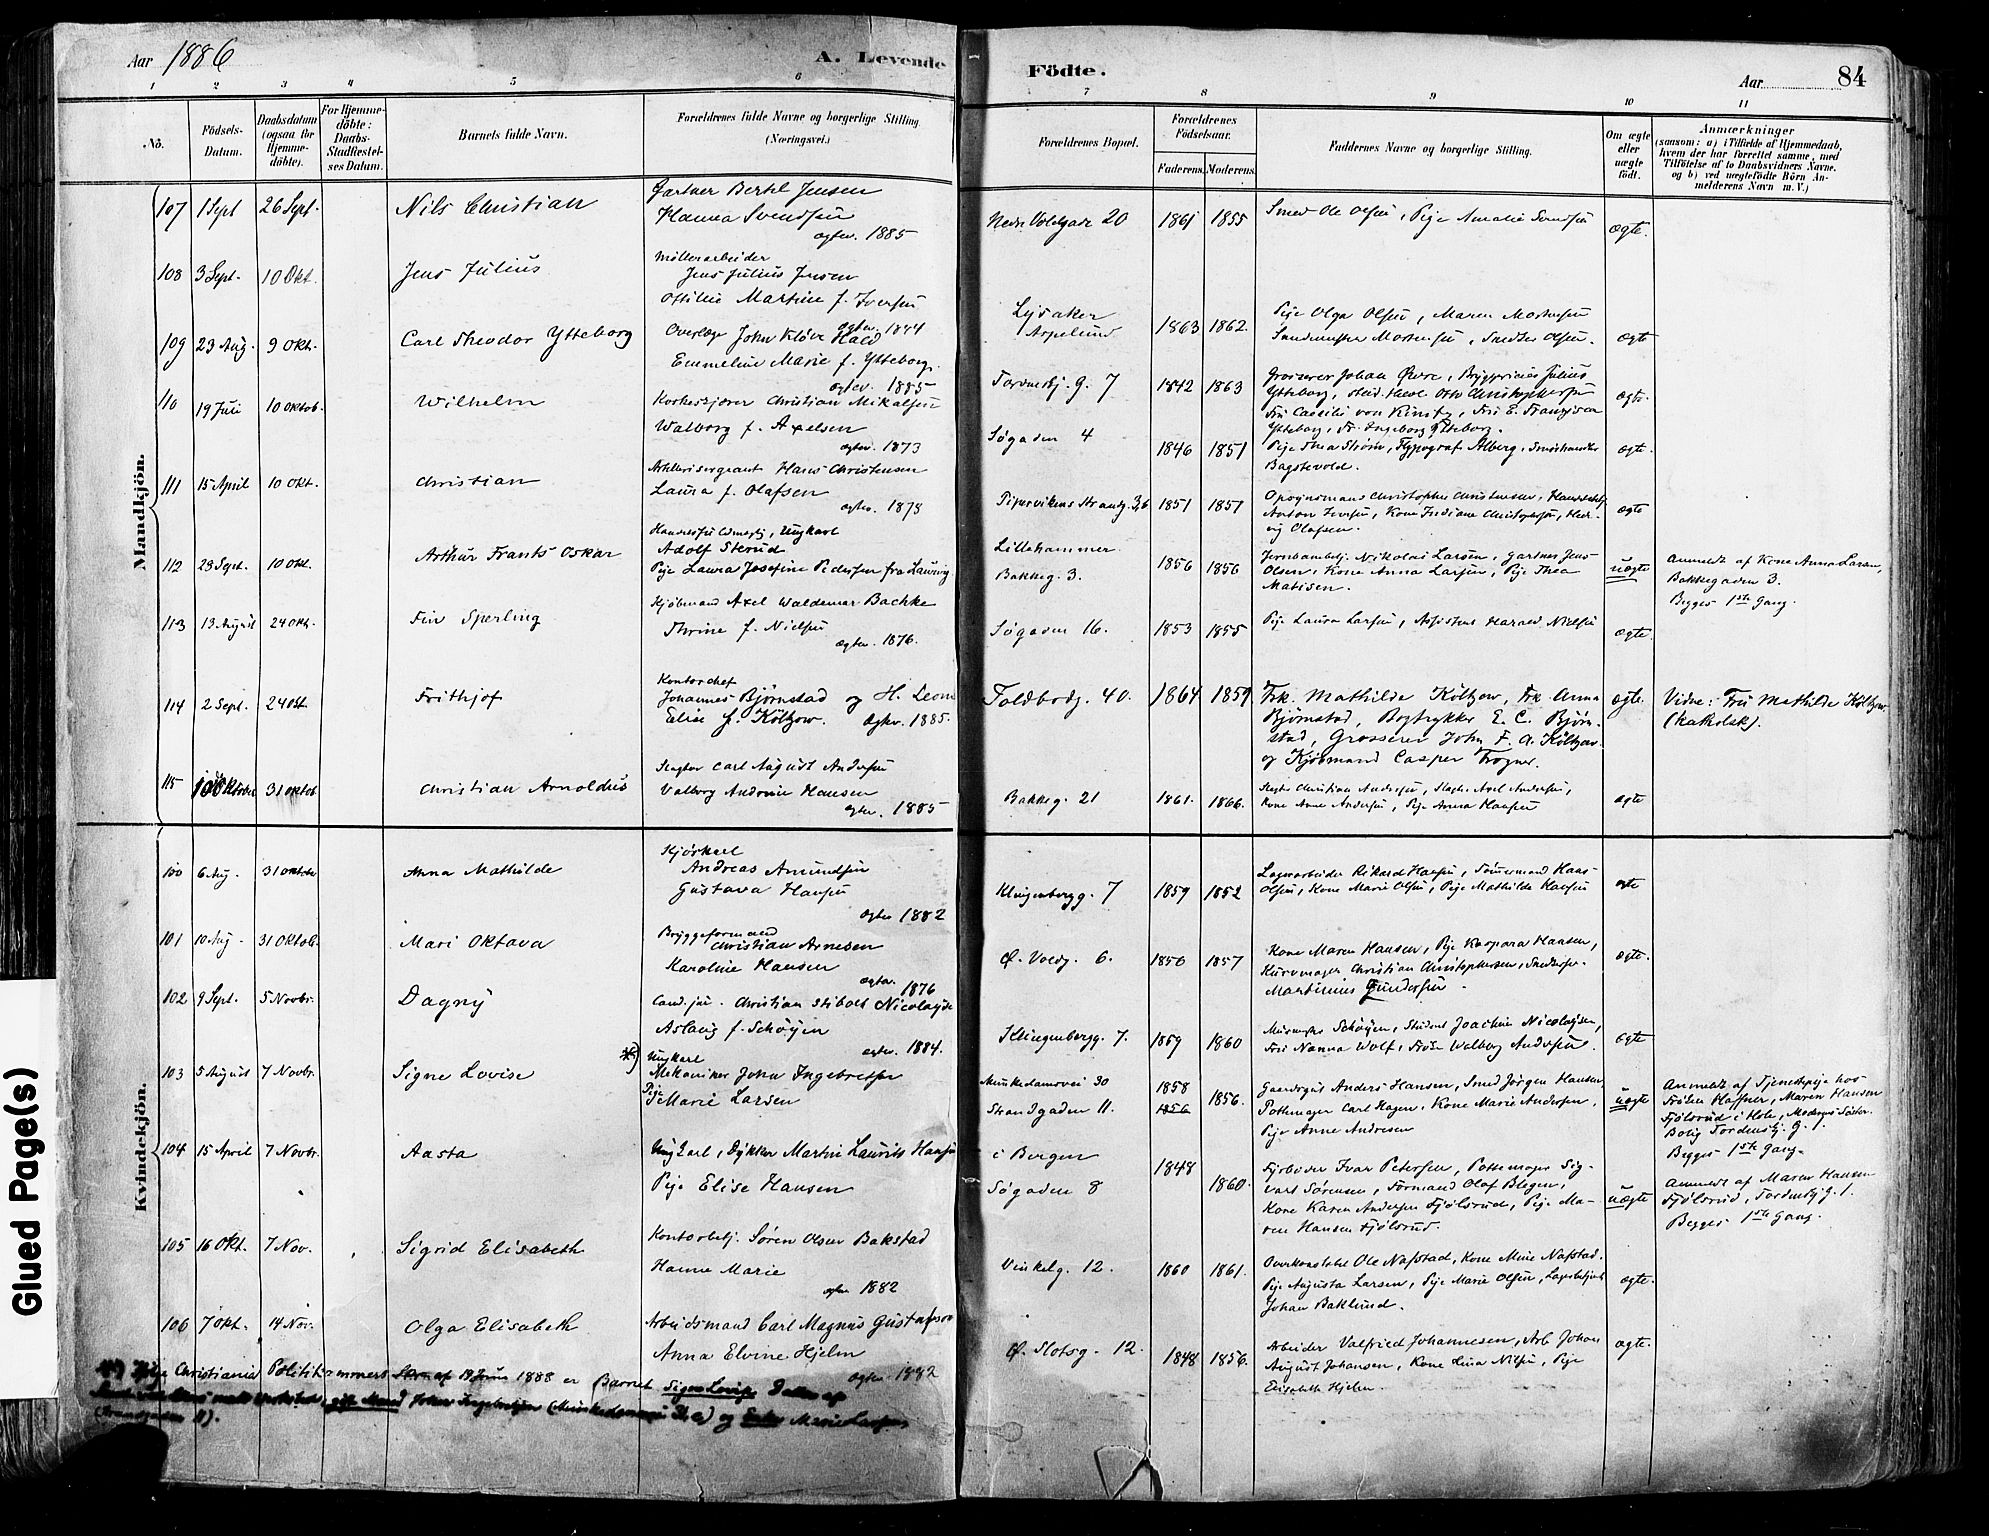 Aar 1886
A. Levende
Födte.
Aar
84
1 2 3 4 5 6
7 8 9 10 11
No.
Födsels-
Datum.
Daabsdatum
(ogsaa for
Hjemme-
döbte).
For Hjemme-
döbte:
Daabs-
Stadfæstel-
ses Datum.
Barnets fulde Navn.
Forældrenes fulde Navne og borgerlige Stilling
(Næringsvei.)
Forældrenes Bopæl.
Forældrenes
Födselsaar.
Faderens. Moderens.
Faddernes Navne og borgerlige Stilling.
Om ægte
eller
uægte
født.
Anmærkninger
(saasom: a) i Tilfælde af Hjemmedaab,
hvem der har forrettet samme, med
Tilföielse af to Daabsvidners Navne.
og b) ved uægtefödte Börn An-
melderens Navn m. V.)
Mandkjön.
107 1 Sept 26 Sept. Nils Christian
Gartner Bertel Jensen
Hanna Svendsen
ægtev. 1885
Nedre Voldgade 20 1861 1855
Smed Ole Olsen, Pige Amalie Svendsen
ægte.
108 3 Sept. 10 Okt. Jens Julius
Möllerarbeider
Jens Julius Jensen
Ottilie Martine f. Iversen
ægtev. 1844
Lysaker
1863 1862.
Pige Olga Olsen, Maren Mortensen
Mortensen, Olsen.
ægte
109 23 Aug. 9 Okt. Carl Theodor Ytteborg
Overlæge John Kløve Hald
Emmeline Marie f. Ytteborg.
ægtev. 1885
Tordenskj. g. 7 1842 1863
Grosserer Johan Øvre, Julius
Ytteborg, stud. theol. Otto Christophersen
Frü E. Franziska
Ytteborg, Fr. Ingeborg Ytteborg.
ægte.
110 19 Juli 10 Oktob. Wilhelm
Korkeskjærer Christian Mikalsen
Walborg f. Axelsen
ægtev. 1873
Søgaden 4
1846 1851
Pige Thea Strøm, Typograf Alberg, Smørhandler
Bagstevold.
ægte.
111 15 April 10 Okt. Christian
Artillerisergeant Hans Christensen
Laura f. Olafsen
ægtev. 1873
Pipervikens Strandg. 3,6 1851 1851
Opsynsmand Christopher Christensen,
Anton Iversen, Kone Indiane Christophersen, Hed-
vig Olafsen.
ægte
112 23 Sept. 10 Okt. Arthur Frants Oskar
Ungkarl
Adolf Sterud
Pige Laura Josefine Pedersen fra Laurvig
Lillehammer
Bakkeg. 3.
1856 1856
Jernbanebetj. Nikolai Larsen, Gartner Jens
Olsen, Kone Anna Larsen, Pige Thea
Matisen.
uægte
Anmeldt af Kone Anna Larsen,
Bakkegaden 3.
Begges 1ste Gang.
113 13 August 24 Okt. Fin Sperling
Kjöbmand Axel Waldemar Bachke
Thrine f. Nielsen
ægtev. 1876.
Søgaden 16. 1853 1855
Pige Laura Larsen, Assistent Harald Nielsen
ægte.
114 2 Sept. 24 Okt. Frithjof
Kontorchef
Johannes Bjørnstad og H. Leon
Elise f. Költzow. Ægtev. 1885.
Toldbodg. 40. 1864 1859
Frk. Mathilde Költzow, Frk. Anna
Bjørnstad, Bogtrykker E. C. Bjørn-
stad, Grosserer John F. A. Költzow
og Kjøbmand Casper Trogner.
ægte.
Vidne: Frü Mathilde Költzow
(katholsk).
115 10 Oktober 31 Oktob Christian Arnoldus
Slagter Carl August Andersen
Valborg Andrine Hansen
ægtev. 1885
Bakkeg. 21 1861. 1866.
Slagter Christian Andersen, Slagt. Axel Andersen,
Kone Anne Andersen, Pige Anna Hansen
ægte
Kvindekjön.
100 6 Aug. 31 Oktober Anna Mathilde
Kjørkarl
Andreas Amundsen
Gustava Hansen
ægtev 1882
Klingenbergg. 7 1859 1852
Lagerarbeider Rikard Hansen, Tömmermand Hans
Olsen, Kone Marie Olsen, Pige Mathilde Hansen
ægte
101 10 Aug. 31 Oktob. Mari Oktava
Bryggeformand
Christian Arnesen
Karoline Hansen
ægtev. 1876
Ø. Voldg. 6. 1850 1857
Kone Maren Hansen, Pige Kaspara Hansen,
Kurvmager Christian Christophersen,
Martinius Gundersen.
ægte.
102 9 Sept. 5 Novbr. Dagny
Cand. jur. Christian Stibolt Nicolaysen
Aslaug f. Schøyen
ægtev. 1884.
Klingenbergg. 7. 1859 1860
Murmester Schøyen, Student Joachim Nicolaysen,
Frü Nanna Wolf, Frøken Walborg Andersen.
ægte
103 5 August 7 Novbr. Signe Lovise
*) Ungkarl
Mekaniker John Ingebretsen
Pige Marie Larsen
Munkedamsvei 30
Strandgaden 11.
1858
1856 1856.
Gaardsgut Anders Hansen, Smed Jørgen Hansen,
Pottemager Carl Hagen, Kone Marie Andersen,
Pige Anne Andresen
uægte
Anmeldt af Tjenestepige hos
Frøken Haffner, Maren Hansen
Fjölsrud i Hole, Moderens Söster.
Bolig Tordenskj. g. 1.
Begges 1ste Gang.
104 15 April 7 Novbr. Aasta
Ungkarl, Dykker Martin Laurits Hansen
Pige Elise Hansen
i Bergen
Søgaden 8
1848
1860.
Fyrbøder Ivar Petersen, Pottemager Sig-
vart Sørensen, Formand Olaf Blegen,
Kone Karen Andersen Fjölsrud, Pige Ma-
ren Hansen Fjölsrud.
uægte
Anmeldt af Maren Hansen
Fjölsrud, Tordenskj. g. 1.
Begges 1ste Gang.
105 16 Okt. 7 Nov. Sigrid Elisabeth
Kontorbetj. Søren Olsen Bakstad
Hanne Marie
ægtev 1882
Vinkelg. 12. 1860 1861.
Overkonstabel Ole Nafstad, Kone Mine Nafstad.
Pige Augusta Larsen, Pige Marie Olsen,
Johan Baklund.
ægte.
106 7 Okt. 14 Nov. Olga Elisabeth
Arbeidsmand Carl Magnus Gustafson
Anna Elvine Hjelm
ægtev. 1882
Ø. Slotsg. 12. 1848 1856.
Arbeider Valfried Johannesen, Arb. Johan
August Johansen, Kone Lina Nilsen, Pige
Elisabeth Hjelm
ægte.
*) Ifølge Christiania Politikammers af 19 Juni 1888 er Barnet Signe Lovise Datter af
gift Mand John Ingebretsen (Munkedamsvei 30) og Marie Larsen
(Strandgaden 11).
Glued Page(s)